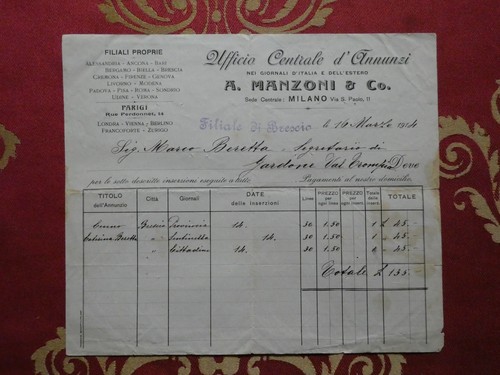 FILIALI PROPRIE
ALESSANDRIA - ANCONA - BARI
BERGAMO - BIELLA - BRESCIA
CREMONA - FIRENZE - GENOVA
LIVORNO - MODENA
PADOVA - PISA - ROMA - SONDRIO
UDINE - VERONA
PARIGI
Rue Perdonnet, 14
LONDRA - VIENNA - BERLINO
FRANCOFORTE - ZURIGO
Ufficio Centrale d'Annunzi
NEI GIORNALI D'ITALIA E DELL'ESTERO
A. MANZONI & Co.
Sede Centrale: MILANO Via S. Paolo, 11
Filiale di Brescia
le 16 Marzo 1914
Sig. Marco Beretta - Segretario di
Gardone Val Trompia Deve
per le sotto descritte inserzioni eseguite a tutto
Pagamento al nostro domicilio.
TITOLO dell'Annunzio Città Giornali DATE delle Inserzioni Linee PREZZO per ogni linea PREZZO per ogni inserz. Totale delle inserz. TOTALE
Brescia Provincia 14. 30 1.50 1 £ 45.-
Caterina Beretta " Sentinella 14. 30 1.50 1 " 45.-
" Cittadino 14. 30 1.50 1 " 45.-
Totale £ 135.-